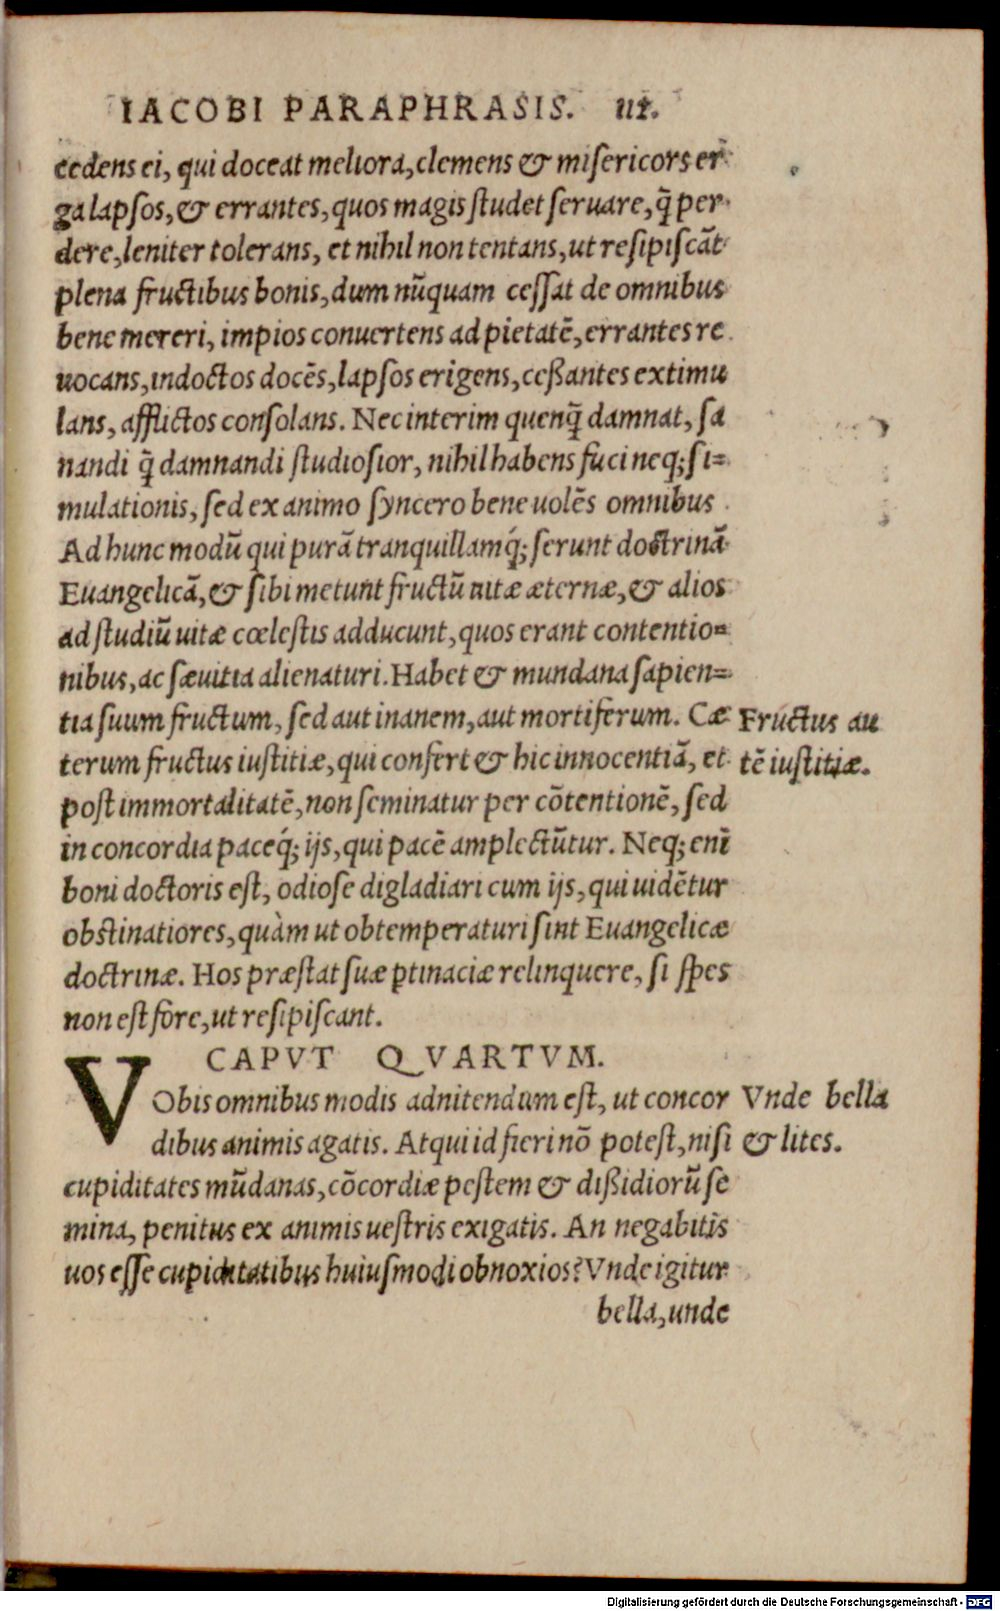 IACOBI PARAPHRASIS. III.
cedens ei, qui doceat meliora, clemens & misericors er
ga lapsos, & errantes, quos magis studet seruare, q̃ per
dere, leniter tolerans, et nihil non tentans, ut resipiscãt
plena fructibus bonis, dum nũquam cessat de omnibus
bene mereri, impios conuertens ad pietatẽ, errantes re
uocans, indoctos docẽs, lapsos erigens, ceßantes extimu
lans, afflictos consolans. Nec interim quenq̃ damnat, sa
nandi q̃ damnandi studiosior, nihil habens fuci neq; si=
mulationis, sed ex animo syncero bene uolẽs omnibus
Ad hunc modũ qui purã tranquillamq́; serunt doctrinã
Euangelicã, & sibi metunt fructũ uitæ æternæ, & alios
ad studiũ uitæ cœlestis adducunt, quos erant contentio=
nibus, ac sæuitia alienaturi. Habet & mundana sapien=
tia suum fructum, sed aut inanem, aut mortiferum. Cæ
Fructus au
terum fructus iustitiæ, qui confert & hic innocentiã, et
tẽ iustitiæ.
post immortalitatẽ, non seminatur per cõtentionẽ, sed
in concordia paceq́; ijs, qui pacẽ amplectũtur. Neq; enĩ
boni doctoris est, odiose digladiari cum ijs, qui uidẽtur
obstinatiores, quàm ut obtemperaturi sint Euangelicæ
doctrinæ. Hos præstat suæ ꝑtinaciæ relinquere, si spes
non est fore, ut resipiscant.
CAPVT QVARTVM.
VObis omnibus modis adnitendum est, ut concor
Vnde bella
dibus animis agatis. Atqui id fieri nõ potest, nisi
& lites.
cupiditates mũdanas, cõcordiæ pestem & dißidiorũ se
mina, penitus ex animis uestris exigatis. An negabitis
uos esse cupiditatibus huiusmodi obnoxios? Vnde igitur
bella, unde
Digitalisierung gefördert durch die Deutsche Forschungsgemeinschaft - DFG